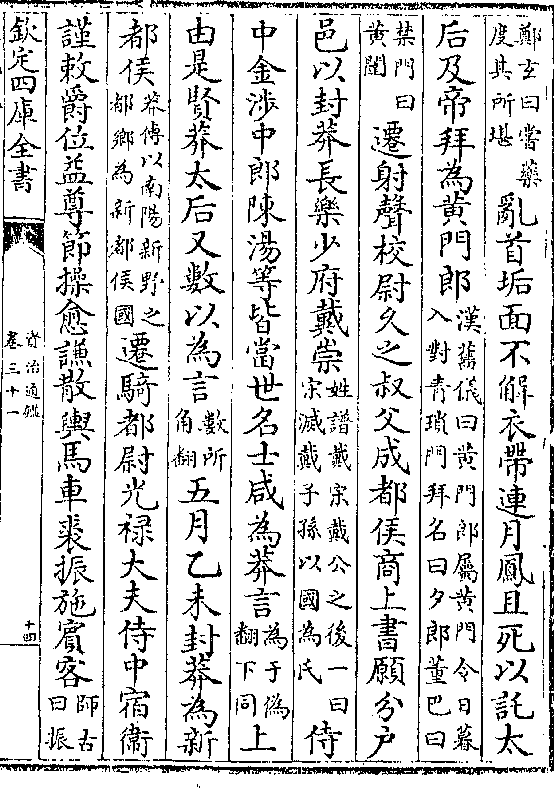 鄭玄曰嘗藥度其所堪 亂首垢面不解衣帶連月鳳且死以託太
后及帝拜為黃門郎 漢舊儀曰黃門郎屬黃門令日暮入對青瑣門拜名曰夕郎董巴曰
禁門曰黃闥 遷射聲校尉久之叔父成都侯商上書願分户
邑以封莽長樂少府戴崇 姓譜戴宋戴公之後一曰宋滅戴子孫以國為氏 侍
中金涉中郎陳湯等皆當世名士咸為莽言 為于偽翻下同 上
由是賢莽太后又數以為言 數所角翻 五月乙未封莽為新
都侯 莽傳以南陽新野之都鄉為新都侯國 遷騎都尉光禄大夫侍中宿衛
謹敕爵位益尊節操愈謙散輿馬車裘振施賓客 師古曰振
欽定四庫全書
資治通鑑
卷三十一
十四